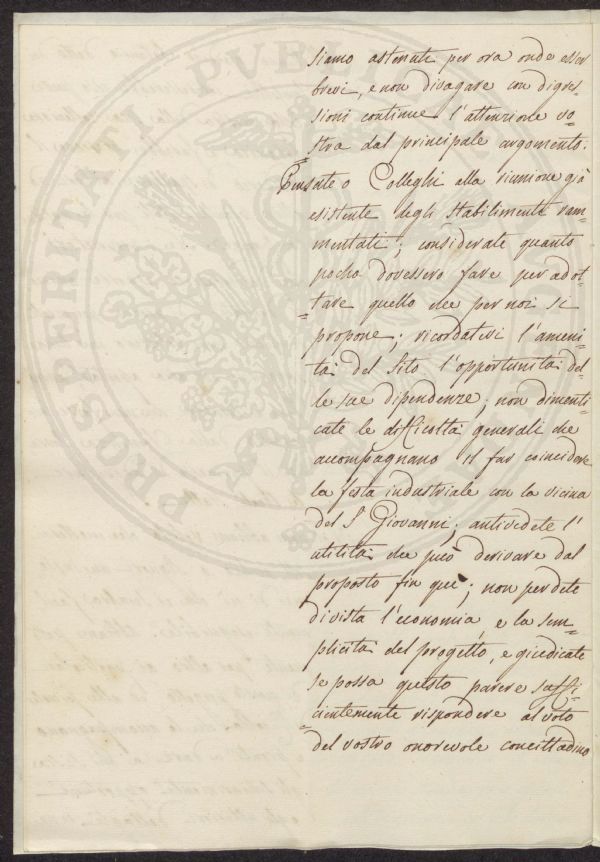 siamo astenute per ora onde esser
brevi, e non divagare con digres=
sioni continue l'attenzione vo=
=stra dal principale argomento.
Pensate o Colleghi alla riunione già
esistente degli stabilimenti ram=
mentati; considerate quanto
pocho dovessero fare per adot=
=tare quello che per noi si
propone; ricordatevi l'ameni=
tà del sito l'opportunità del=
le sue dipendenze; non dimenti=
cate le difficoltà generali che
accompagnano il far coincidere
la festa industriale con la vicina
del S. Giovanni; antivedete l'
utilità che può derivare dal
proposto fin qui; non perdete
di vista l'economia, e la sem=
plicità del progetto, e giudicate
se possa questo parere suffi=
=cientemente rispondere al voto
del vostro onorevole concittadino
PROSPERITATI PUBLICAE